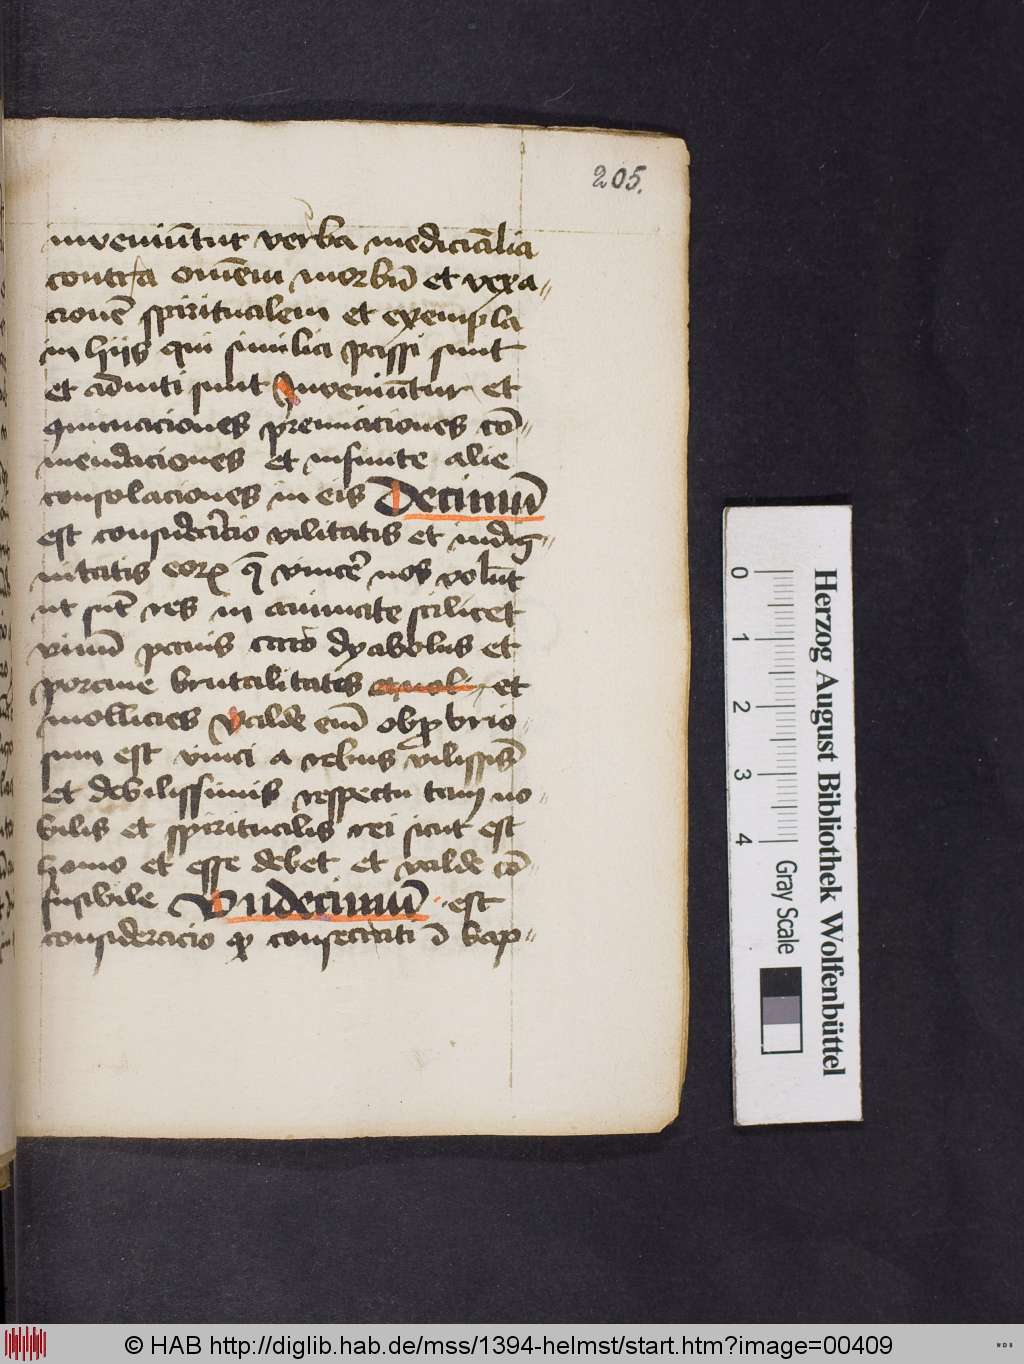 205.
inveniu̅tur verba medicia̅lia
contra om̅em morbu̅ et vexa-
cione̅ spiritualem et exempla
in hijs qui similia passi sunt
et adiuti sunt Inveniu̅tur et
premiaciones co̅-
mendaciones et infinite alie
consolaciones in eis Decimu̅
est consideracio vilitatis et indig-
nitatis eorꝝ q̅ vince̅ nos volu̅t
ut su̅t res in animate scilicet
vinu̅ panis caro dyabolus et
porcine brutalitates et
mollicies Valde eni̅ obprobrio-
sum est vinci a rebus vilissi̅s
et debilissimis respectu tam no-
bilis et spiritualis rei sicut est
homo et esse debet et valde co̅-
fusibile Vndecimu̅ est
consideracio ꝙ consecrati i̅ bap-
Herzog August Bibliothek Wolfenbüttel
0 1 2 3 4 Gray Scale
© HAB http://diglib.hab.de/mss/1394-helmst/start.htm?image=00409